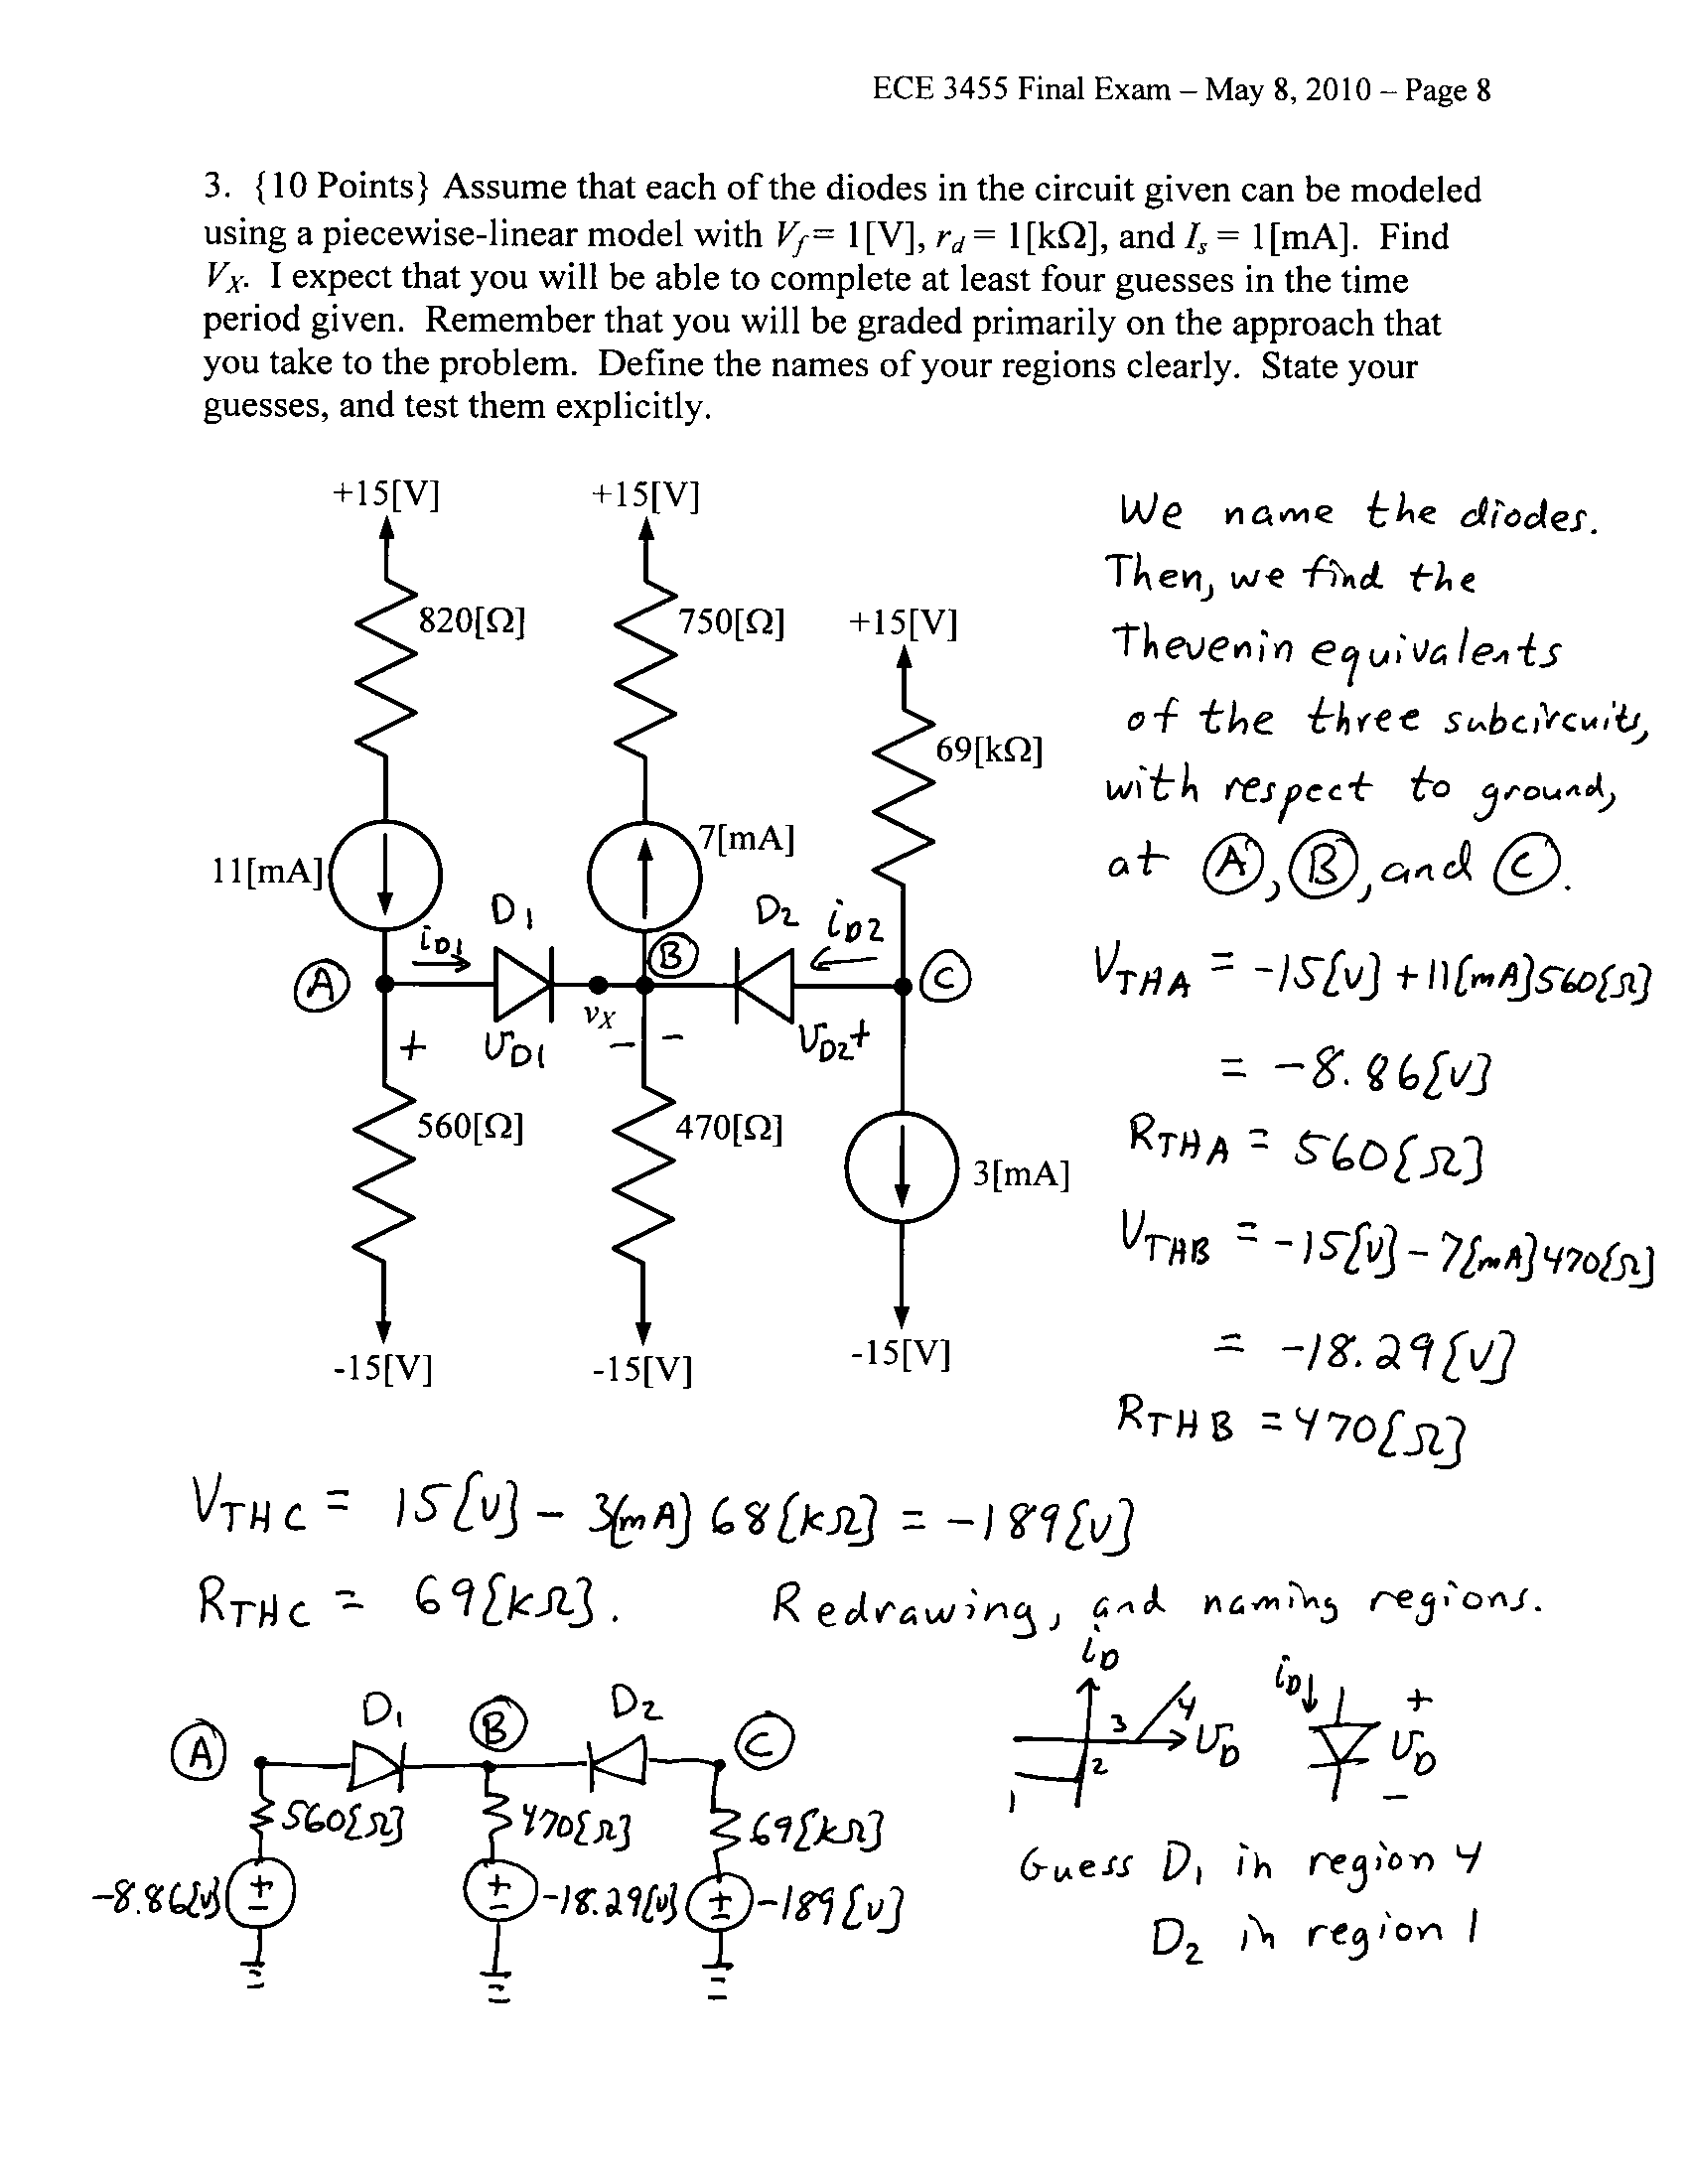 ECE 3455 Final Exam – May 8, 2010 – Page 8
3. {10 Points} Assume that each of the diodes in the circuit given can be modeled
using a piecewise-linear model with Vf = 1[V], rd = 1[kΩ], and Is = 1[mA]. Find
VX. I expect that you will be able to complete at least four guesses in the time
period given. Remember that you will be graded primarily on the approach that
you take to the problem. Define the names of your regions clearly. State your
guesses, and test them explicitly.
+15[V]
+15[V]
820[Ω]
750[Ω]
+15[V]
69[kΩ]
11[mA]
7[mA]
D1
D2
iD1
iD2
A
B
C
vX
+
vD1
–
–
vD2
+
560[Ω]
470[Ω]
3[mA]
-15[V]
-15[V]
-15[V]
We name the diodes.
Then, we find the
Thevenin equivalents
of the three subcircuits,
with respect to ground,
at A, B, and C.
VTHA = -15[V] + 11[mA]560[Ω]
= -8.86[V]
RTHA = 560[Ω]
VTHB = -15[V] - 7[mA]470[Ω]
= -18.29[V]
RTHB = 470[Ω]
VTHC = 15[V] - 3[mA] 68[kΩ] = -189[V]
RTHC = 69[kΩ]. Redrawing, and naming regions.
A
D1
B
D2
C
560[Ω]
470[Ω]
69[kΩ]
-8.86[V]
+
-
+
-
-18.29[V]
+
-
-189[V]
iD
3
4
vD
2
1
iD
+
vD
-
Guess D1 in region 4
D2 in region 1